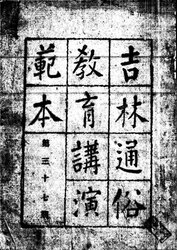 吉林通俗
教育講演
範本
第三十七號